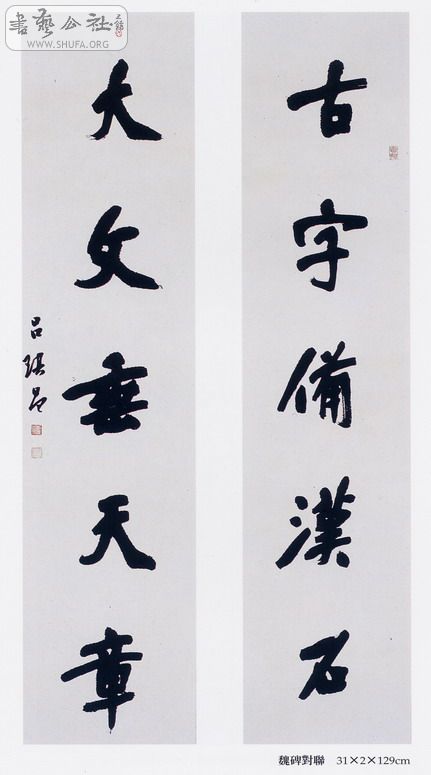 古字備漢石
大文垂天章
魏碑對聯 31×2×129cm
書藝公社
WWW.SHUFA.ORG